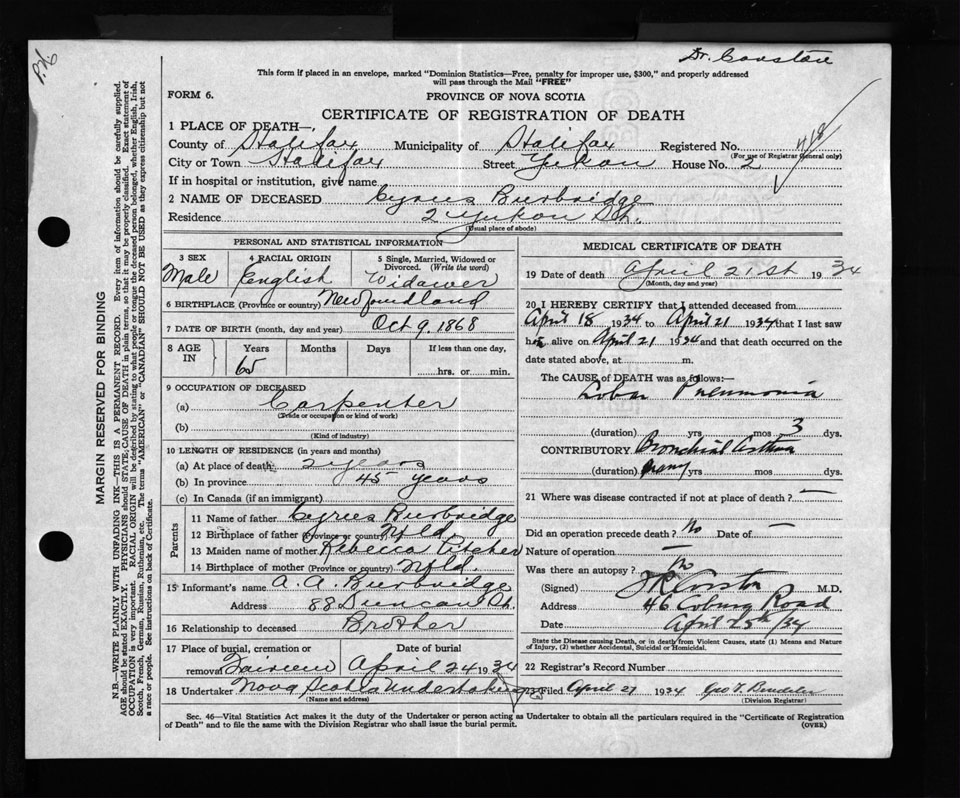 Dr. Corston
This form if placed in an envelope, marked "Dominion Statistics—Free, penalty for improper use, $300," and properly addressed
will pass through the Mail "FREE"
FORM 6.
PROVINCE OF NOVA SCOTIA
CERTIFICATE OF REGISTRATION OF DEATH
1 PLACE OF DEATH—,
County of Halifax Municipality of Halifax Registered No.
(For use of Registrar General only)
City or Town Halifax Street Yukon House No. 2
If in hospital or institution, give name
2 NAME OF DECEASED Cyrus Burbridge
Residence 2 Yukon St.
(Usual place of abode)
PERSONAL AND STATISTICAL INFORMATION
3 SEX 4 RACIAL ORIGIN 5 Single, Married, Widowed or Divorced. (Write the word)
Male English Widower
6 BIRTHPLACE (Province or country) Newfoundland
7 DATE OF BIRTH (month, day and year) Oct 9, 1868
8 AGE IN Years Months Days If less than one day,
65 hrs. or min.
9 OCCUPATION OF DECEASED
(a) Carpenter
(Trade or occupation or kind of work)
(b)
(Kind of industry)
10 LENGTH OF RESIDENCE (in years and months)
(a) At place of death: 2 years
(b) In province 45 years
(c) In Canada (if an immigrant)
Parents
11 Name of father Cyrus Burbridge
12 Birthplace of father (Province or country) Nfld.
13 Maiden name of mother Rebecca Pitcher
14 Birthplace of mother (Province or country) Nfld.
15 Informant's name A. A. Burbridge
Address 88 Duncan St.
16 Relationship to deceased Brother
17 Place of burial, cremation or removal Date of burial
Fairview April 24 1934
18 Undertaker Nova Scotia Undertaking
(Name and address)
MEDICAL CERTIFICATE OF DEATH
19 Date of death April 21st 1934
(Month, day and year)
20 I HEREBY CERTIFY that I attended deceased from
April 18 1934 to April 21 1934 that I last saw
him alive on April 21 1934 and that death occurred on the
date stated above, at m.
The CAUSE of DEATH was as follows:—
Lobar Pneumonia
(duration) yrs mos 3 dys.
CONTRIBUTORY Bronchial Asthma
(duration) many yrs mos dys.
21 Where was disease contracted if not at place of death? —
Did an operation precede death? No Date of —
Nature of operation —
Was there an autopsy? No
(Signed) Corston M.D.
Address 46 Coburg Road
Date April 25th/34
State the Disease causing Death, or in death from Violent Causes, state (1) Means and Nature
of Injury, (2) whether Accidental, Suicidal or Homicidal.
22 Registrar's Record Number
23 Filed April 27 1934
(Division Registrar)
Sec. 46—Vital Statistics Act makes it the duty of the Undertaker or person acting as Undertaker to obtain all the particulars required in the "Certificate of Registration
of Death" and to file the same with the Division Registrar who shall issue the burial permit.
(OVER)
MARGIN RESERVED FOR BINDING
N.B.—WRITE PLAINLY WITH UNFADING INK—THIS IS A PERMANENT RECORD. Every item of information should be carefully supplied.
AGE should be stated EXACTLY. PHYSICIANS should STATE CAUSE OF DEATH in plain terms, so that it may be properly classified. Exact statement of
OCCUPATION is very important. RACIAL ORIGIN will be described by stating to what people or tongue the deceased person belonged, whether English, Irish,
Scotch, French, German, Russian, Ruthenian, etc. The terms "AMERICAN" or "CANADIAN" SHOULD NOT BE USED as they express citizenship but not
a race or people. See instructions on back of Certificate.